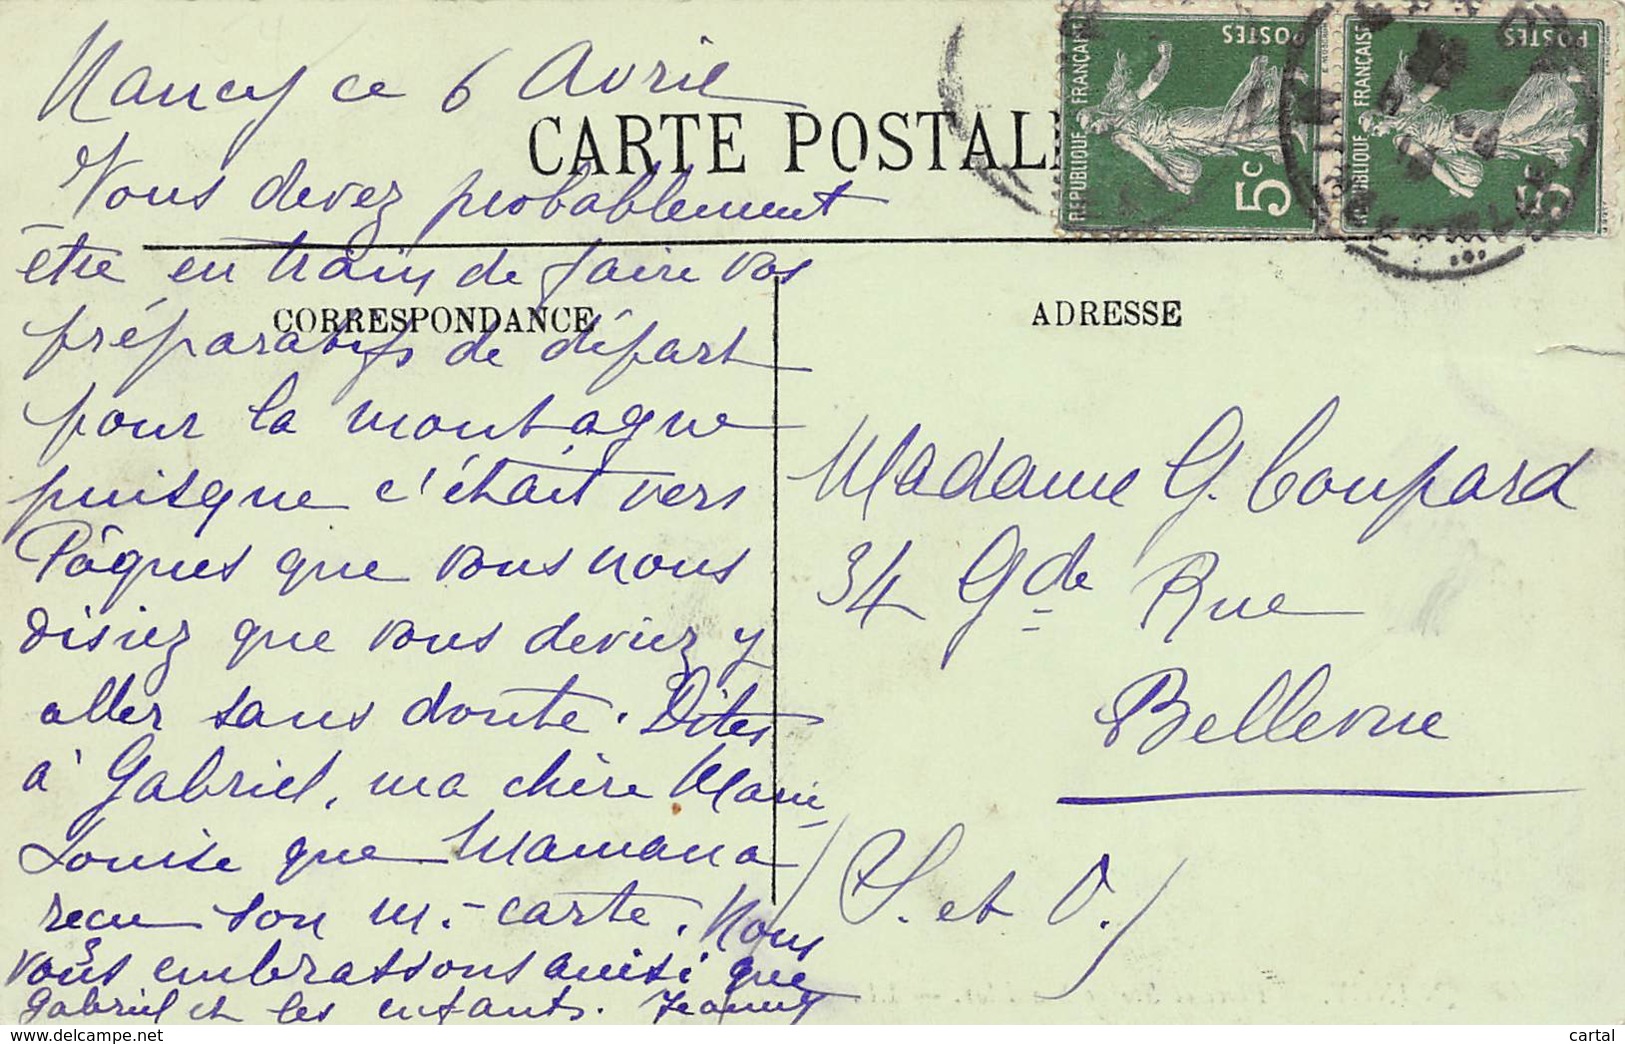 Nancy ce 6 Avril
CARTE POSTAL
Vous devez probablement
être en train de faire vos
CORRESPONDANCE
préparatifs de départ
pour la montagne
puisque c'était vers
Pâques que vous nous
disiez que vous deviez y
aller sans doute. Dites
à Gabriel, ma chère Marie-
Louise que Maman a
reçu son m.-carte. Nous
vous embrassons ainsi que
Gabriel et les enfants. Jeanne
REPUBLIQUE FRANÇAISE
POSTES
5c
REPUBLIQUE FRANÇAISE
POSTES
5
ADRESSE
Madame G. Coupard
34 Gde Rue
Bellevue
(S. et O.)
www.delcampe.net
cartal